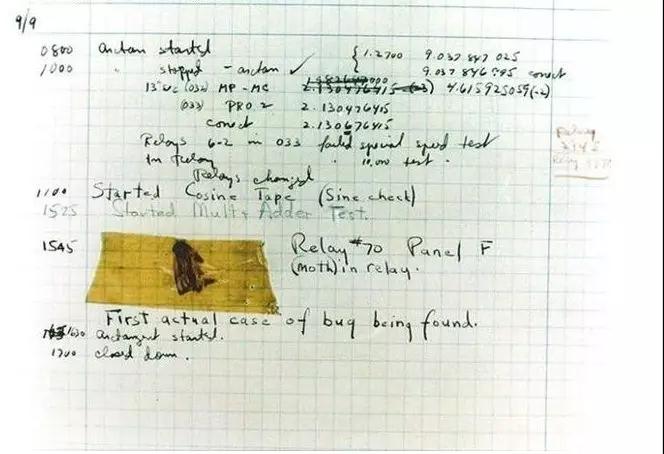 9/9
0800 antan started { 1.2700 9.037 847 025
1000 " stopped - antan ✓ 9.037 846 995 conect
13"uc (032) MP - MC 2.130476415 (-3) 4.615925059(-2)
(033) PRO 2 2.130476415
conect 2.130676415
Relays 6-2 in 033 failed special speed test
in relay " 10,000 test .
Relays changed
1100 Started Cosine Tape (Sine check)
1525 Started Mult + Adder Test.
1545 Relay #70 Panel F
(moth) in relay.
First actual case of bug being found.
1630 antangent started.
1700 closed down.
Relay
Relay